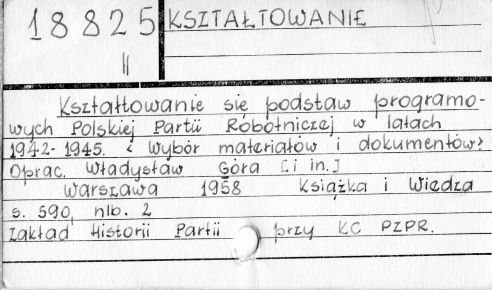 18825
II
KSZTAŁTOWANIE
Kształtowanie się podstaw programo-
wych Polskiej Partii Robotniczej w latach
1942-1945. < Wybór materiałów i dokumentów>
Oprac. Władysław Góra [i in.]
Warszawa 1958 Książka i Wiedza
s. 590, nlb. 2
Zakład Historii Partii przy KC PZPR.